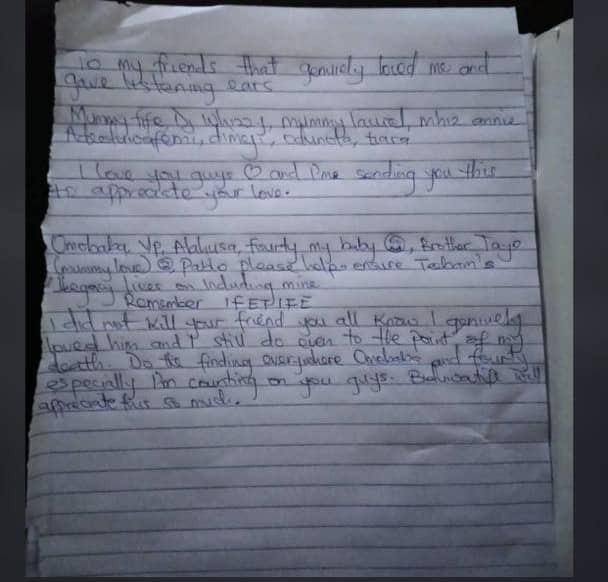 To my friends that genuiely loved me and
gave listening ears
Mummy fife Dj whizzy, mummy laurel, mhiz annie
dimeji, odunola, tiara
I love you guys ♡ and I'm sending you this
to appreciate your love.
Omobaba, VP, Alahusa, fourty my baby, Brother Tayo
(mummy love) @ Pablo please help ensure
legacy lives on Including mine
Remember IFETIFE
I did not kill your friend you all know I geniuely
loved him and I still do even to the point of my
death. Do the finding everywhere Omobaba and fourty
especially I'm counting on you guys. will
appreciate this so much.